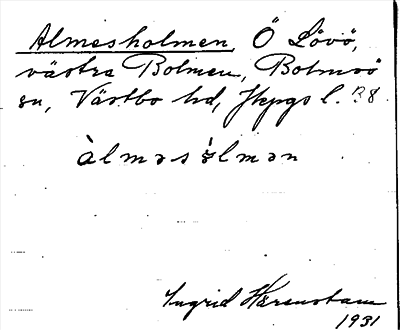 Almesholmen, Ö Lövö,
västra Bolmen, Bolmsö
sn, Västbo hd, Jkpgs l. B8
àlməsɔ̀lmən
Ingrid Härenstam
1931